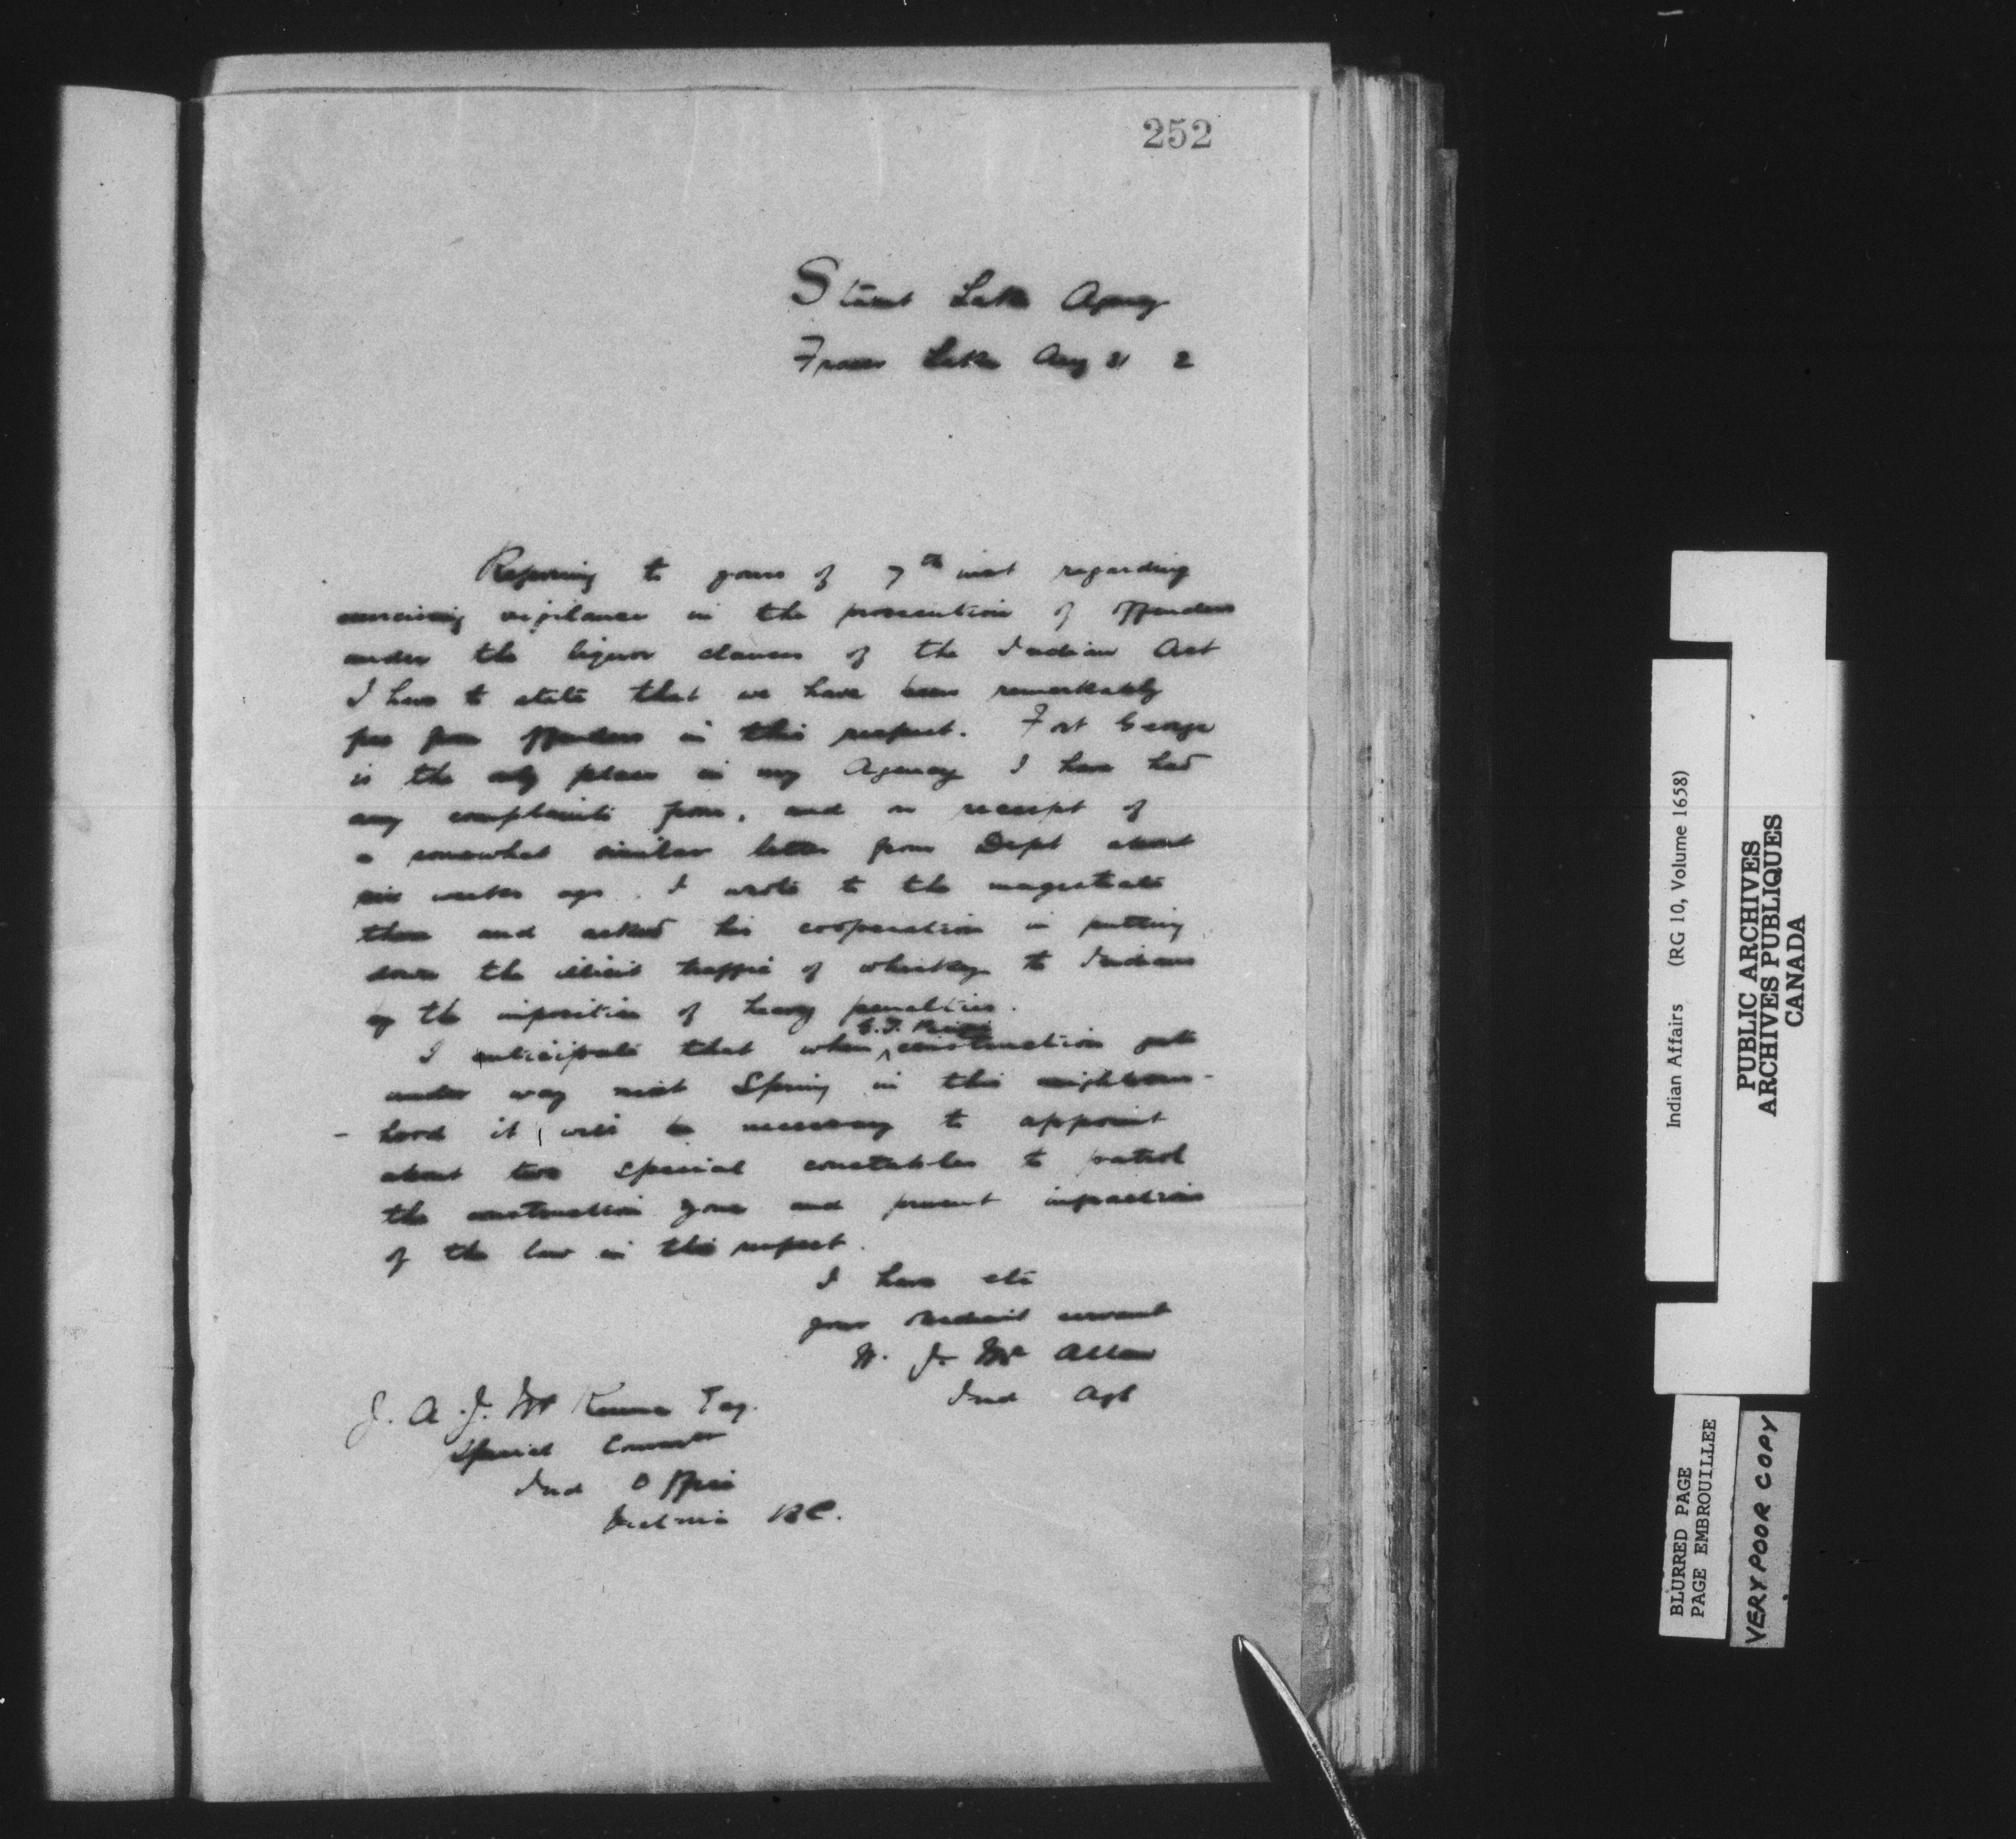 252
Stuart Lake Agency
Fraser Lake Aug 21 2
Referring to yours of 7th inst regarding
exercising vigilance in the prosecution of offenders
under the liquor clauses of the Indian Act
I have to state that we have been remarkably
free from offenders in this respect. Fort George
is the only place in my Agency I have had
any complaints from, and on receipt of
a somewhat similar letter from Dept about
six weeks ago. I wrote to the magistrate
there and asked his cooperation in putting
down the illicit traffic of whiskey to Indians
by the imposition of heavy penalties.
I anticipate that when construction gets
under way next Spring in this neighbour-
hood it will be necessary to appoint
about two special constables to patrol
the construction zone and prevent infractions
of the law in this respect.
I have etc
your obedient servant
W. J. Mc Allan
Ind Agt
J. A. J. Mc Kenna Esq.
Special Commr
Ind Office
Victoria BC.
Indian Affairs (RG 10, Volume 1658)
PUBLIC ARCHIVES
ARCHIVES PUBLIQUES
CANADA
BLURRED PAGE
PAGE EMBROUILLEE
VERY POOR COPY